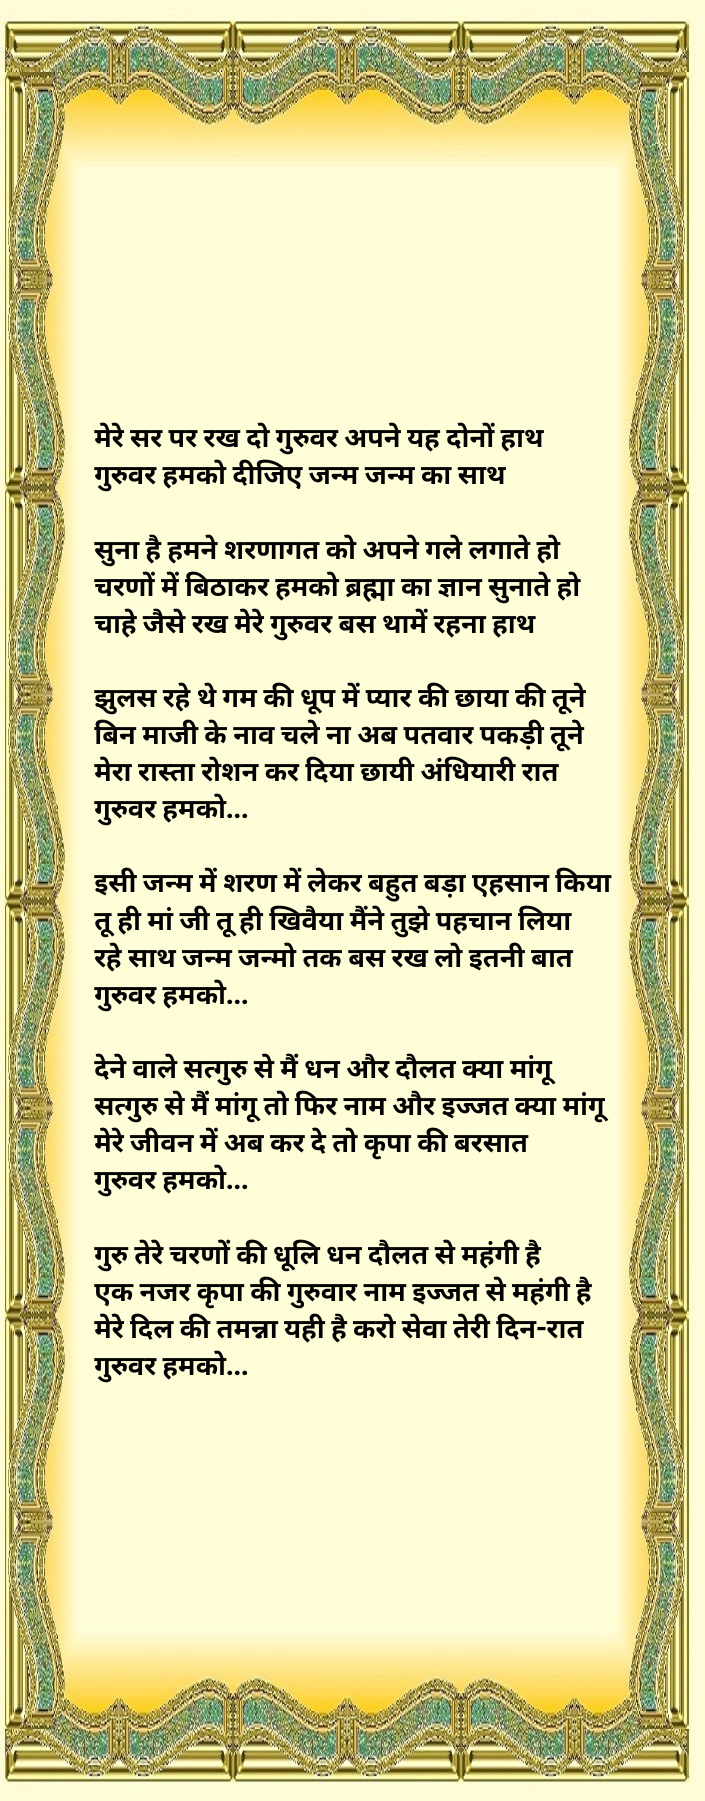 मेरे सर पर रख दो गुरुवर अपने यह दोनों हाथ
गुरुवर हमको दीजिए जन्म जन्म का साथ
सुना है हमने शरणागत को अपने गले लगाते हो
चरणों में बिठाकर हमको ब्रह्मा का ज्ञान सुनाते हो
चाहे जैसे रख मेरे गुरुवर बस थामें रहना हाथ
झुलस रहे थे गम की धूप में प्यार की छाया की तूने
बिन माजी के नाव चले ना अब पतवार पकड़ी तूने
मेरा रास्ता रोशन कर दिया छायी अंधियारी रात
गुरुवर हमको...
इसी जन्म में शरण में लेकर बहुत बड़ा एहसान किया
तू ही मां जी तू ही खिवैया मैंने तुझे पहचान लिया
रहे साथ जन्म जन्मो तक बस रख लो इतनी बात
गुरुवर हमको...
देने वाले सत्गुरु से मैं धन और दौलत क्या मांगू
सत्गुरु से मैं मांगू तो फिर नाम और इज्जत क्या मांगू
मेरे जीवन में अब कर दे तो कृपा की बरसात
गुरुवर हमको...
गुरु तेरे चरणों की धूलि धन दौलत से महंगी है
एक नजर कृपा की गुरुवार नाम इज्जत से महंगी है
मेरे दिल की तमन्ना यही है करो सेवा तेरी दिन-रात
गुरुवर हमको...